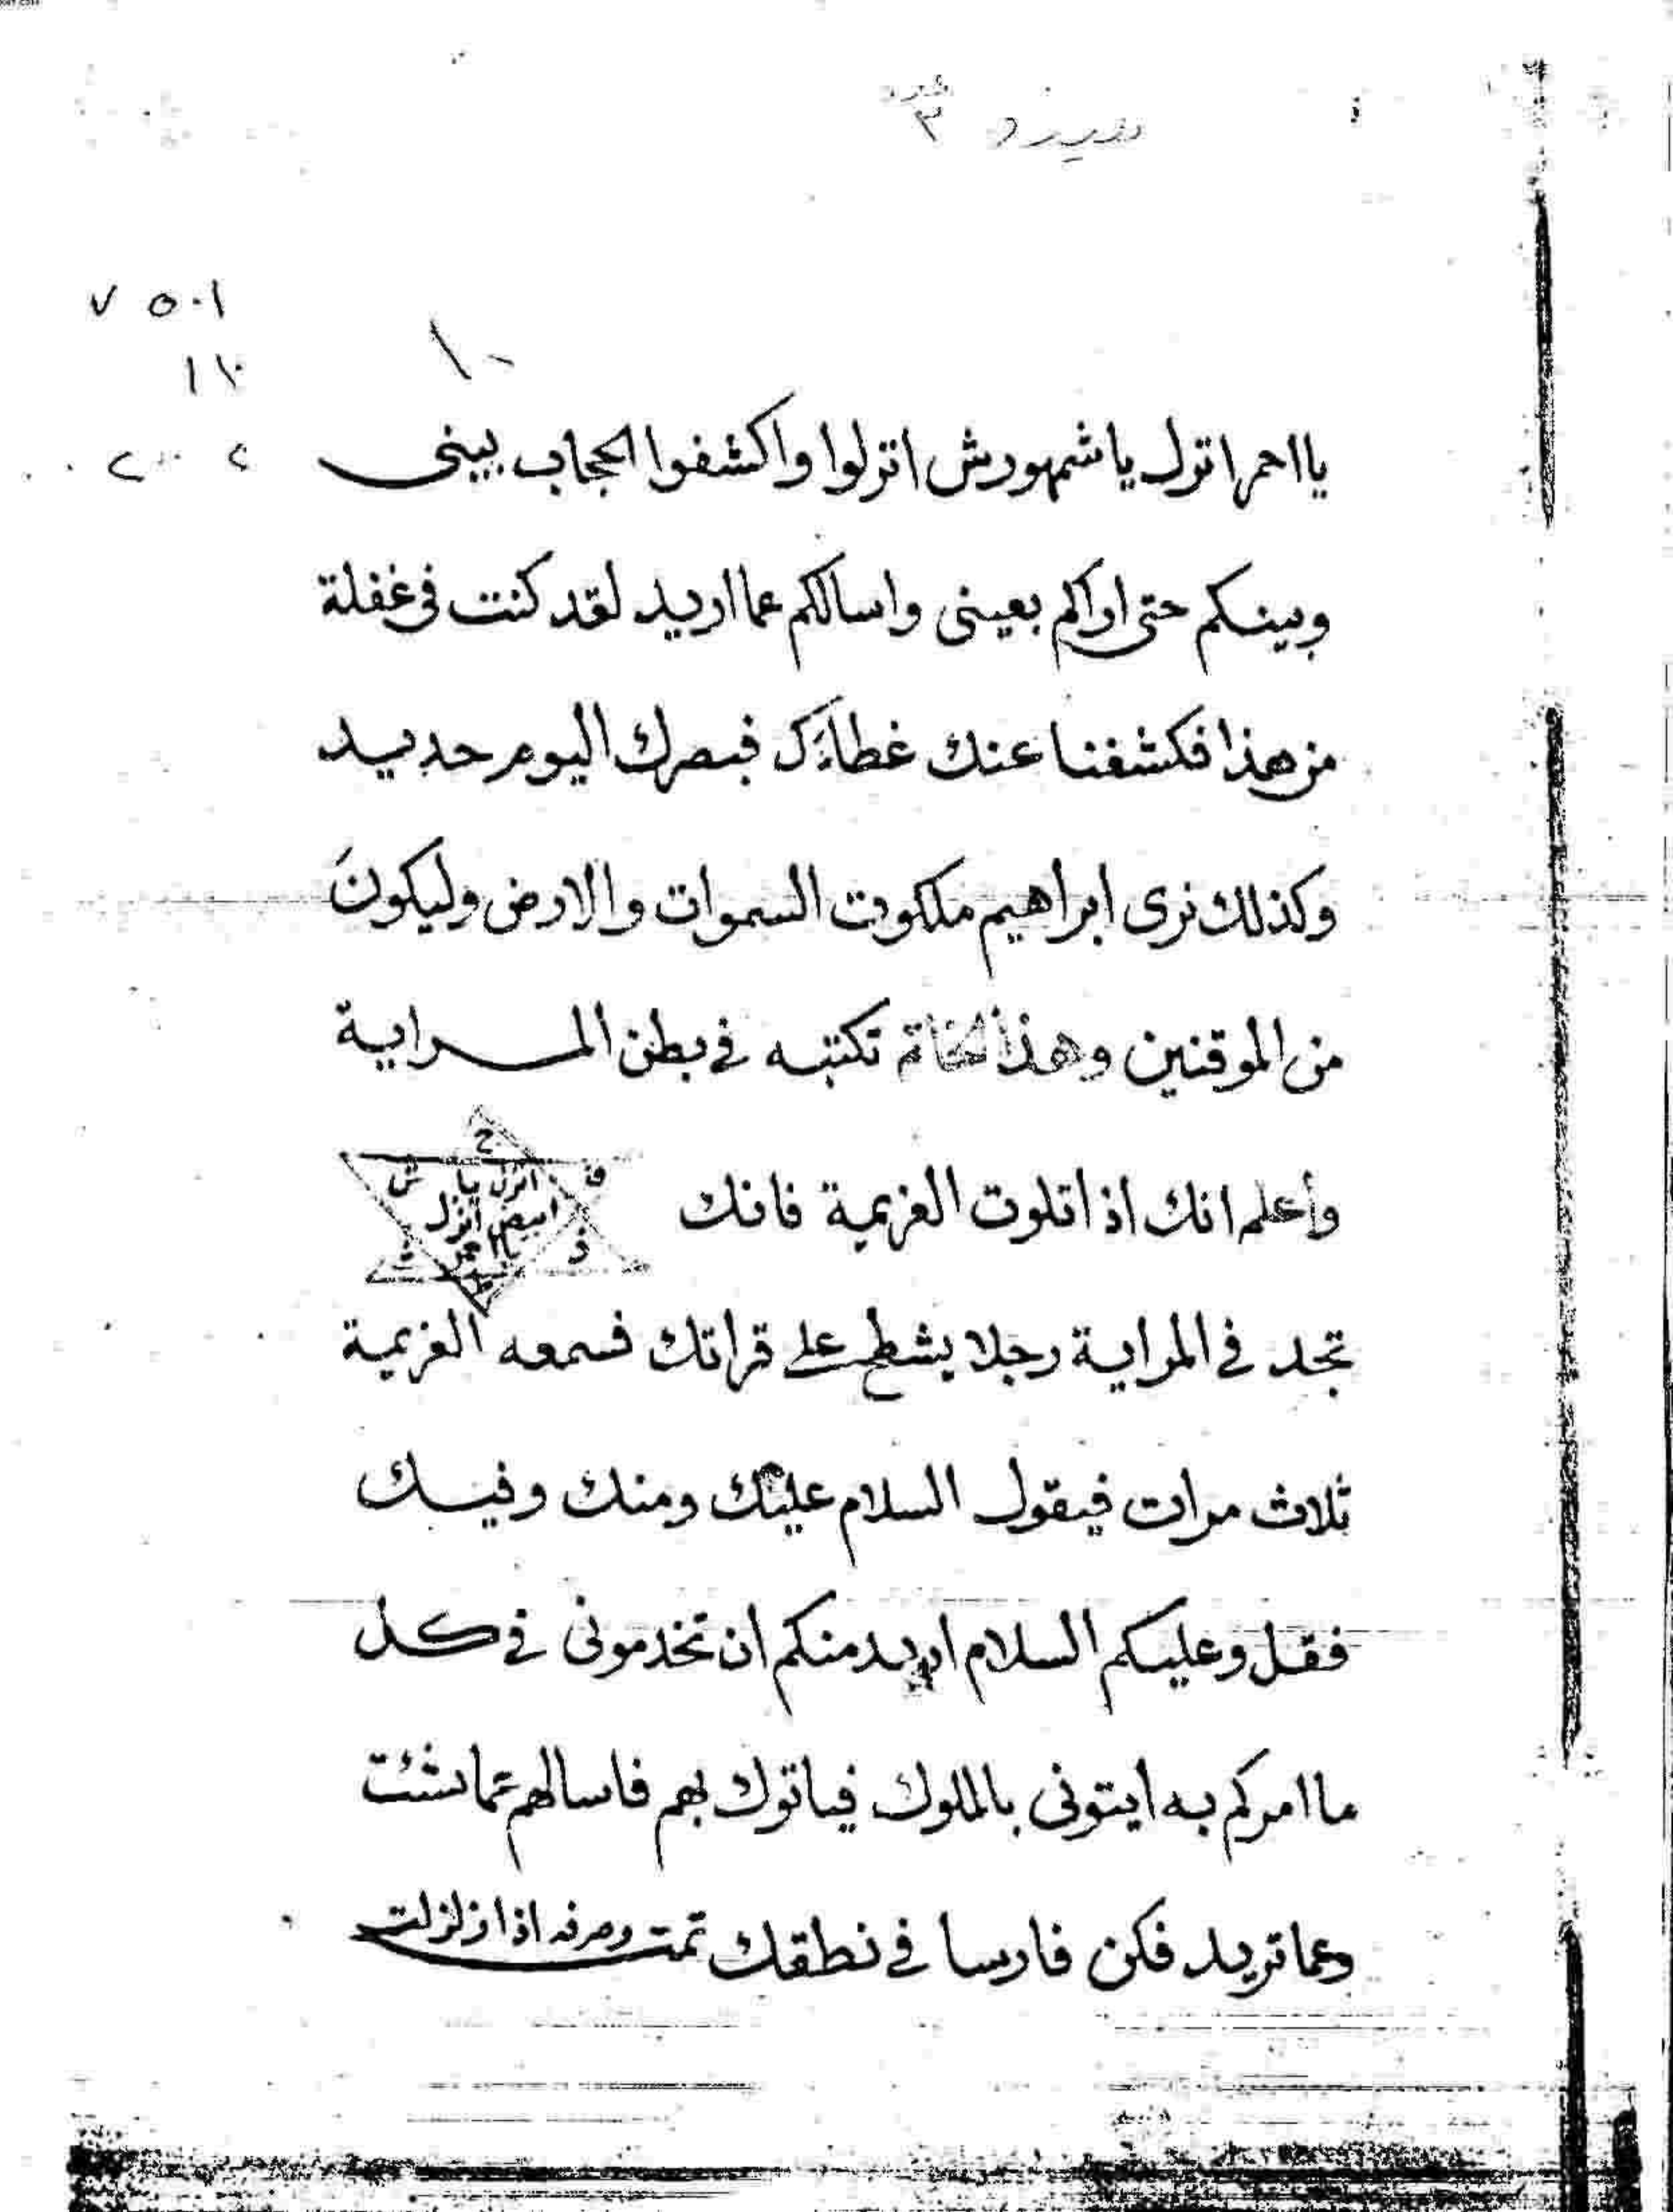 ٣
٧ ٥٠١
١٠
يا احمر انزل يا شمهورش انزلوا واكشفوا الحجاب بينى
وبينكم حتى اراكم بعينى واسالكم عما اريد لقد كنت فى غفلة
من هذا فكشفنا عنك غطاءَك فبصرك اليوم حديد
وكذلك نرى ابراهيم ملكوت السموات والارض وليكونَ
من الموقنين وهذا الخاتم تكتبه فى بطن المراية
وأعلم انك اذا تلوت العزيمة فانك
ح
ش انزل يا ف
ابيض انزل
يا احمر
تجد فى المراية رجلا يشطح على قراتك فسمعه العزيمة
ثلاث مرات فيقول السلام عليك ومنك وفيك
فقل وعليكم السلام اريد منكم ان تخدمونى فى كل
ما امركم به ايتونى بالملوك فياتوك بهم فاسالهم عما شئت
وعما تريد فكن فارسا فى نطقك تمت وصرفه اذا زلزلت